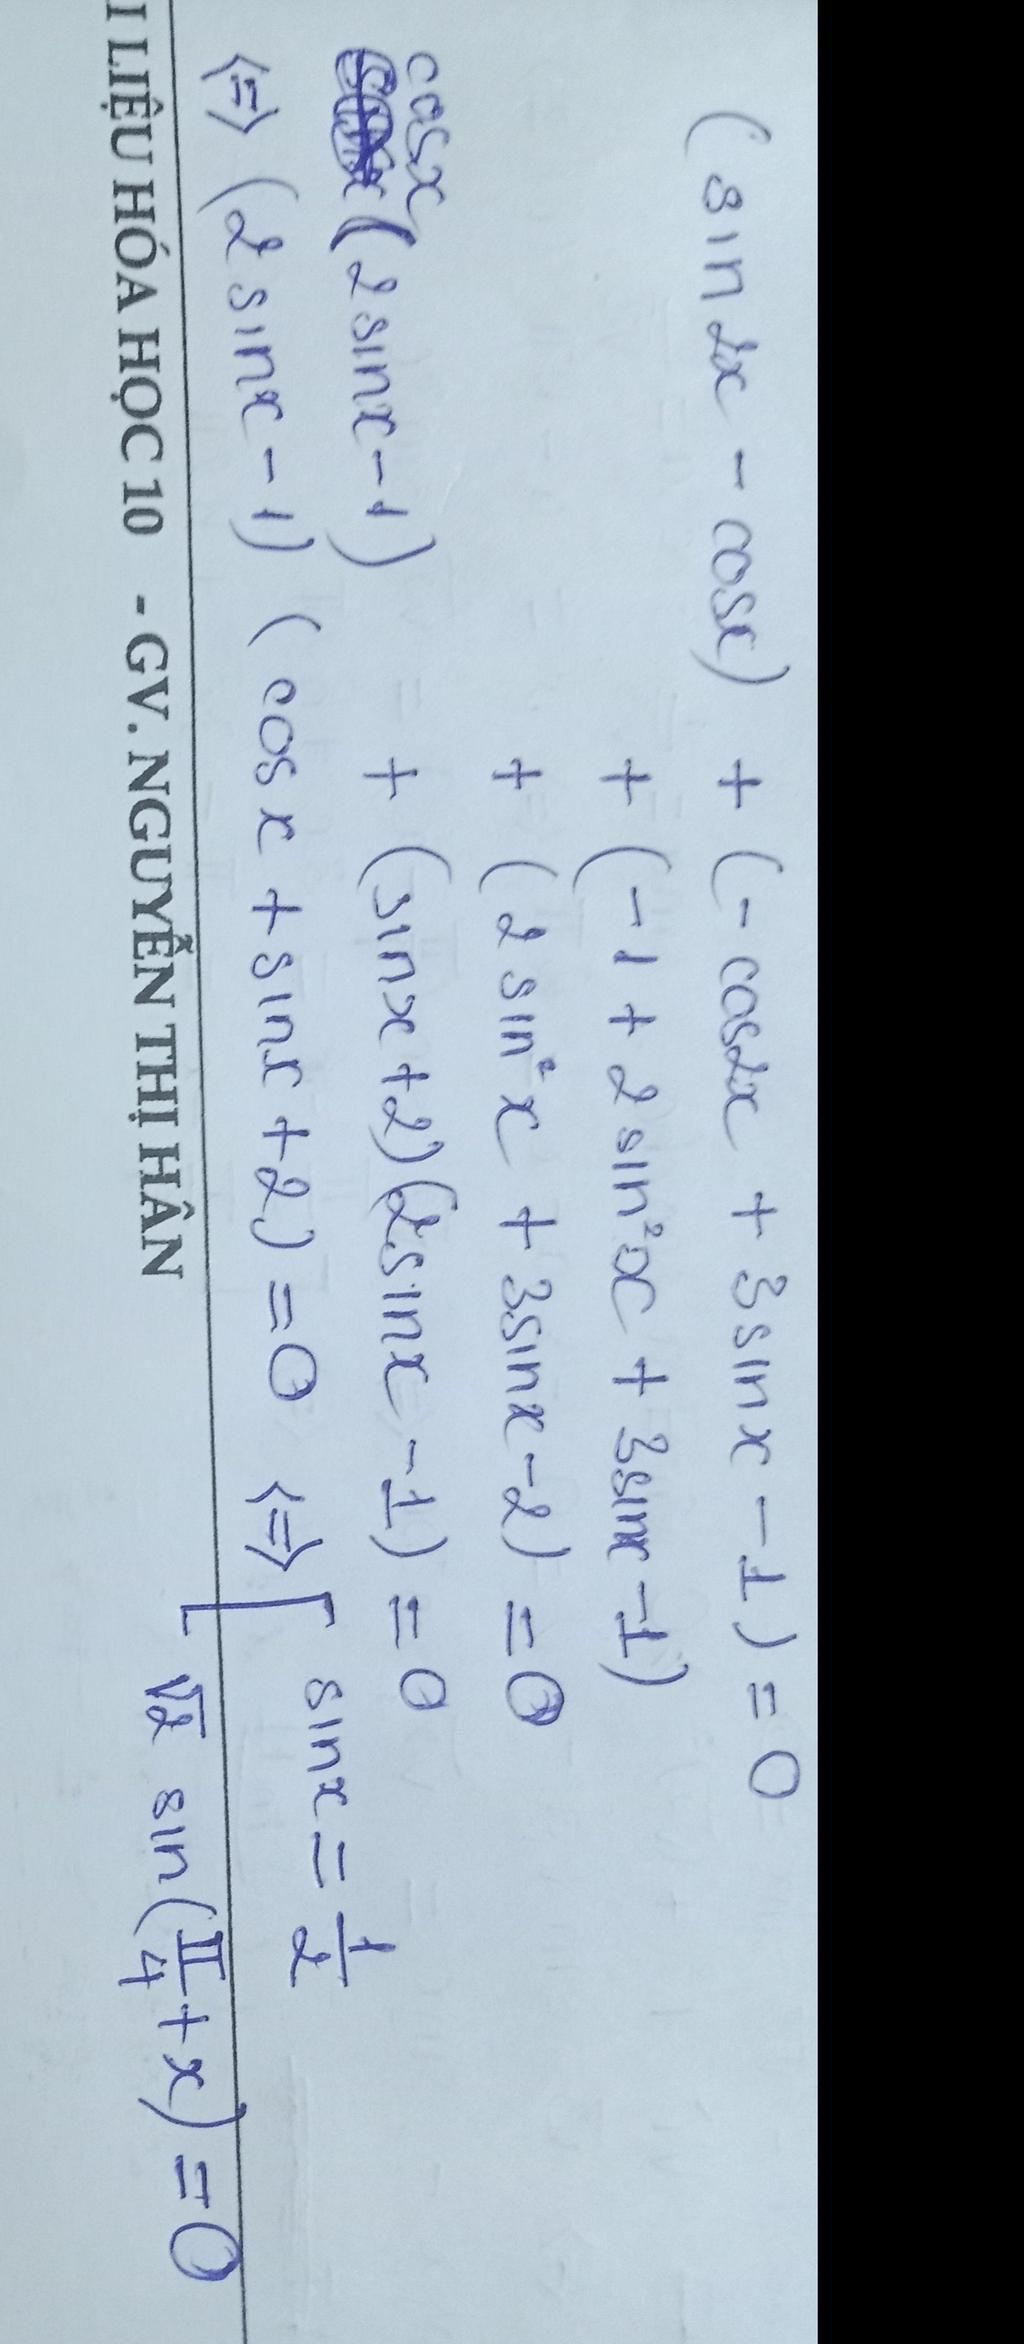 (sin2x - cosx) + (-cos2x + 3sinx - 1) = 0
+ (-1 + 2sin²x + 3sinx - 1)
+ (2sin²x + 3sinx - 2) = 0
cosx (2sinx - 1) + (sinx + 2)(2sinx - 1) = 0
<=> (2sinx - 1) (cosx + sinx + 2) = 0 <=> [ sinx = 1/2
√2 sin(π/4 + x) = 0
I LIỆU HÓA HỌC 10 - GV. NGUYỄN THỊ HÂN